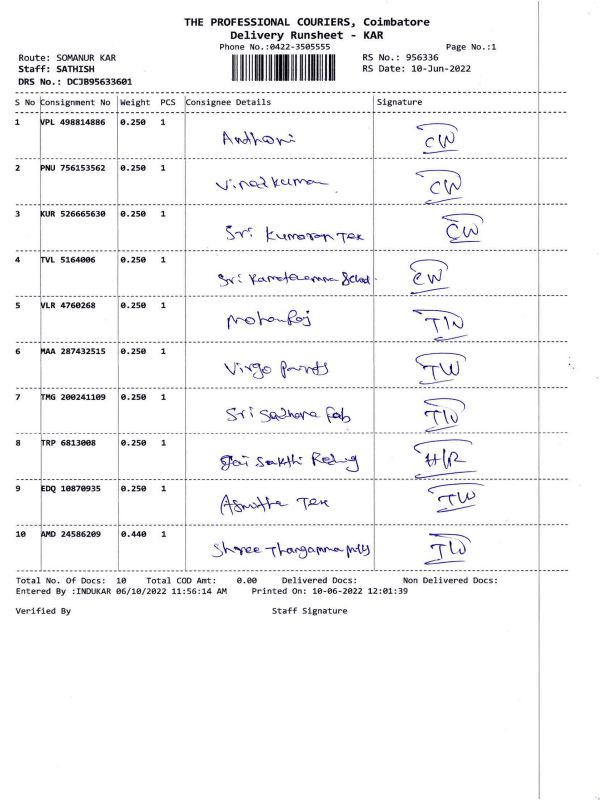 THE PROFESSIONAL COURIERS, Coimbatore
Delivery Runsheet - KAR
Phone No.:0422-3505555 Page No.:1
Route: SOMANUR KAR RS No.: 956336
Staff: SATHISH RS Date: 10-Jun-2022
DRS No.: DCJB95633601
S No Consignment No Weight PCS Consignee Details Signature
1 VPL 498814886 0.250 1 Anthoni CW
2 PNU 756153562 0.250 1 Vinodkumar CW
3 KUR 526665630 0.250 1 Sri Kumaran Tex CW
4 TVL 5164006 0.250 1 Sri CW
5 VLR 4760268 0.250 1 Mohanraj TW
6 MAA 287432515 0.250 1 Virgo TW
7 TMG 200241109 0.250 1 Sri Sadhana Fab TW
8 TRP 6813008 0.250 1 Jai Sakthi H/R
9 EDQ 10870935 0.250 1 Tex TW
10 AMD 24586209 0.440 1 Shree TW
Total No. Of Docs: 10 Total COD Amt: 0.00 Delivered Docs: Non Delivered Docs:
Entered By :INDUKAR 06/10/2022 11:56:14 AM Printed On: 10-06-2022 12:01:39
Verified By Staff Signature